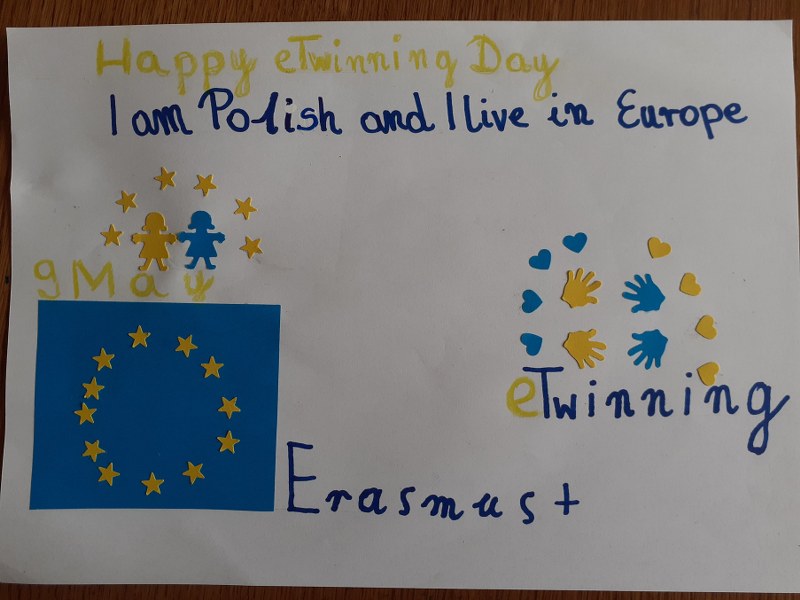 Happy eTwinning Day
I am Polish and I live in Europe
9 May
eTwinning
Erasmus +